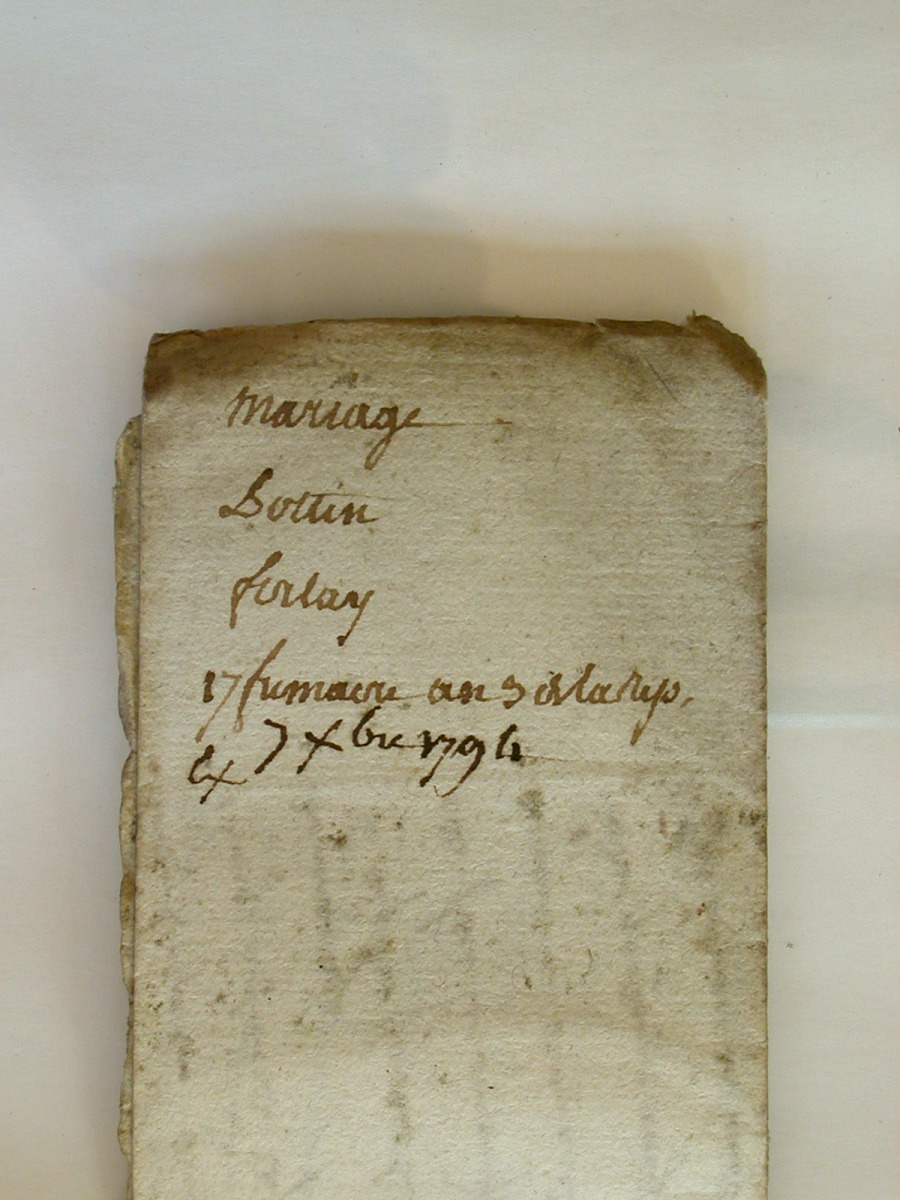 Mariage
Bottin
forlay
17 frimaire an 3 de la rep.
7 xbre 1794